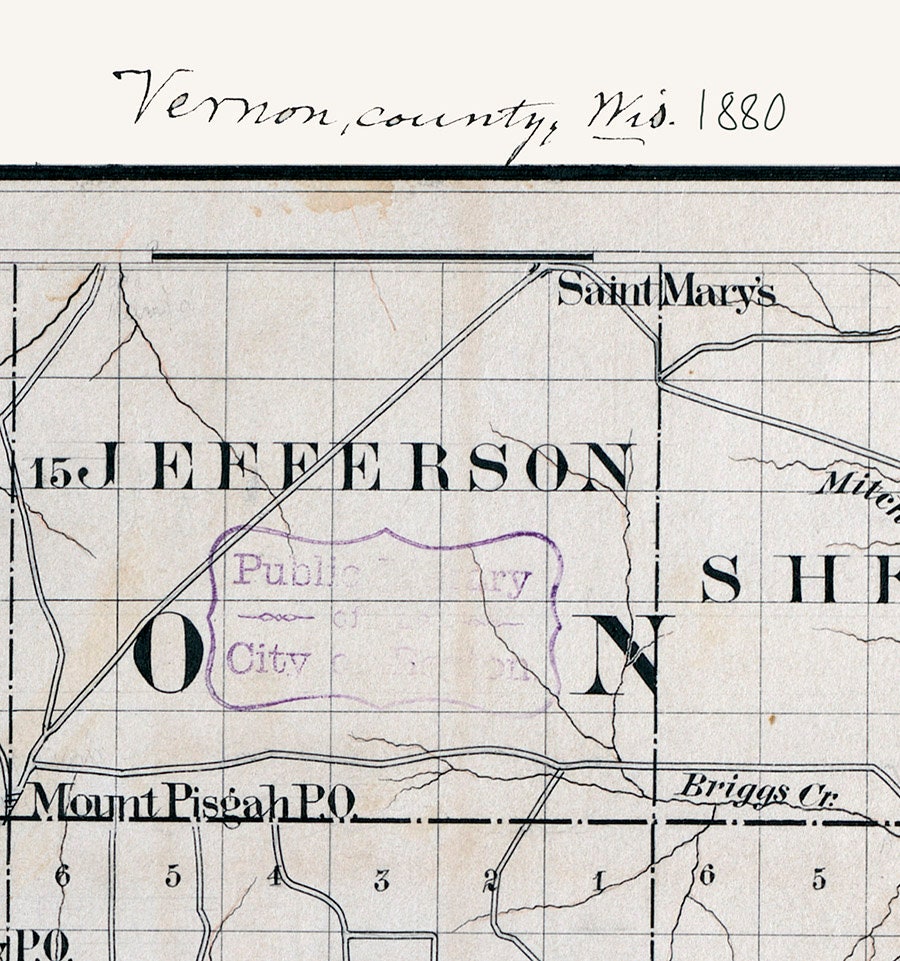 Vernon, county, Wis. 1880
Saint Mary's
15 JEFFERSON
Mitch
SHE
Public
City
O N
Briggs Cr.
Mount Pisgah P.O.
6 5 4 3 2 1 6 5
P.O.